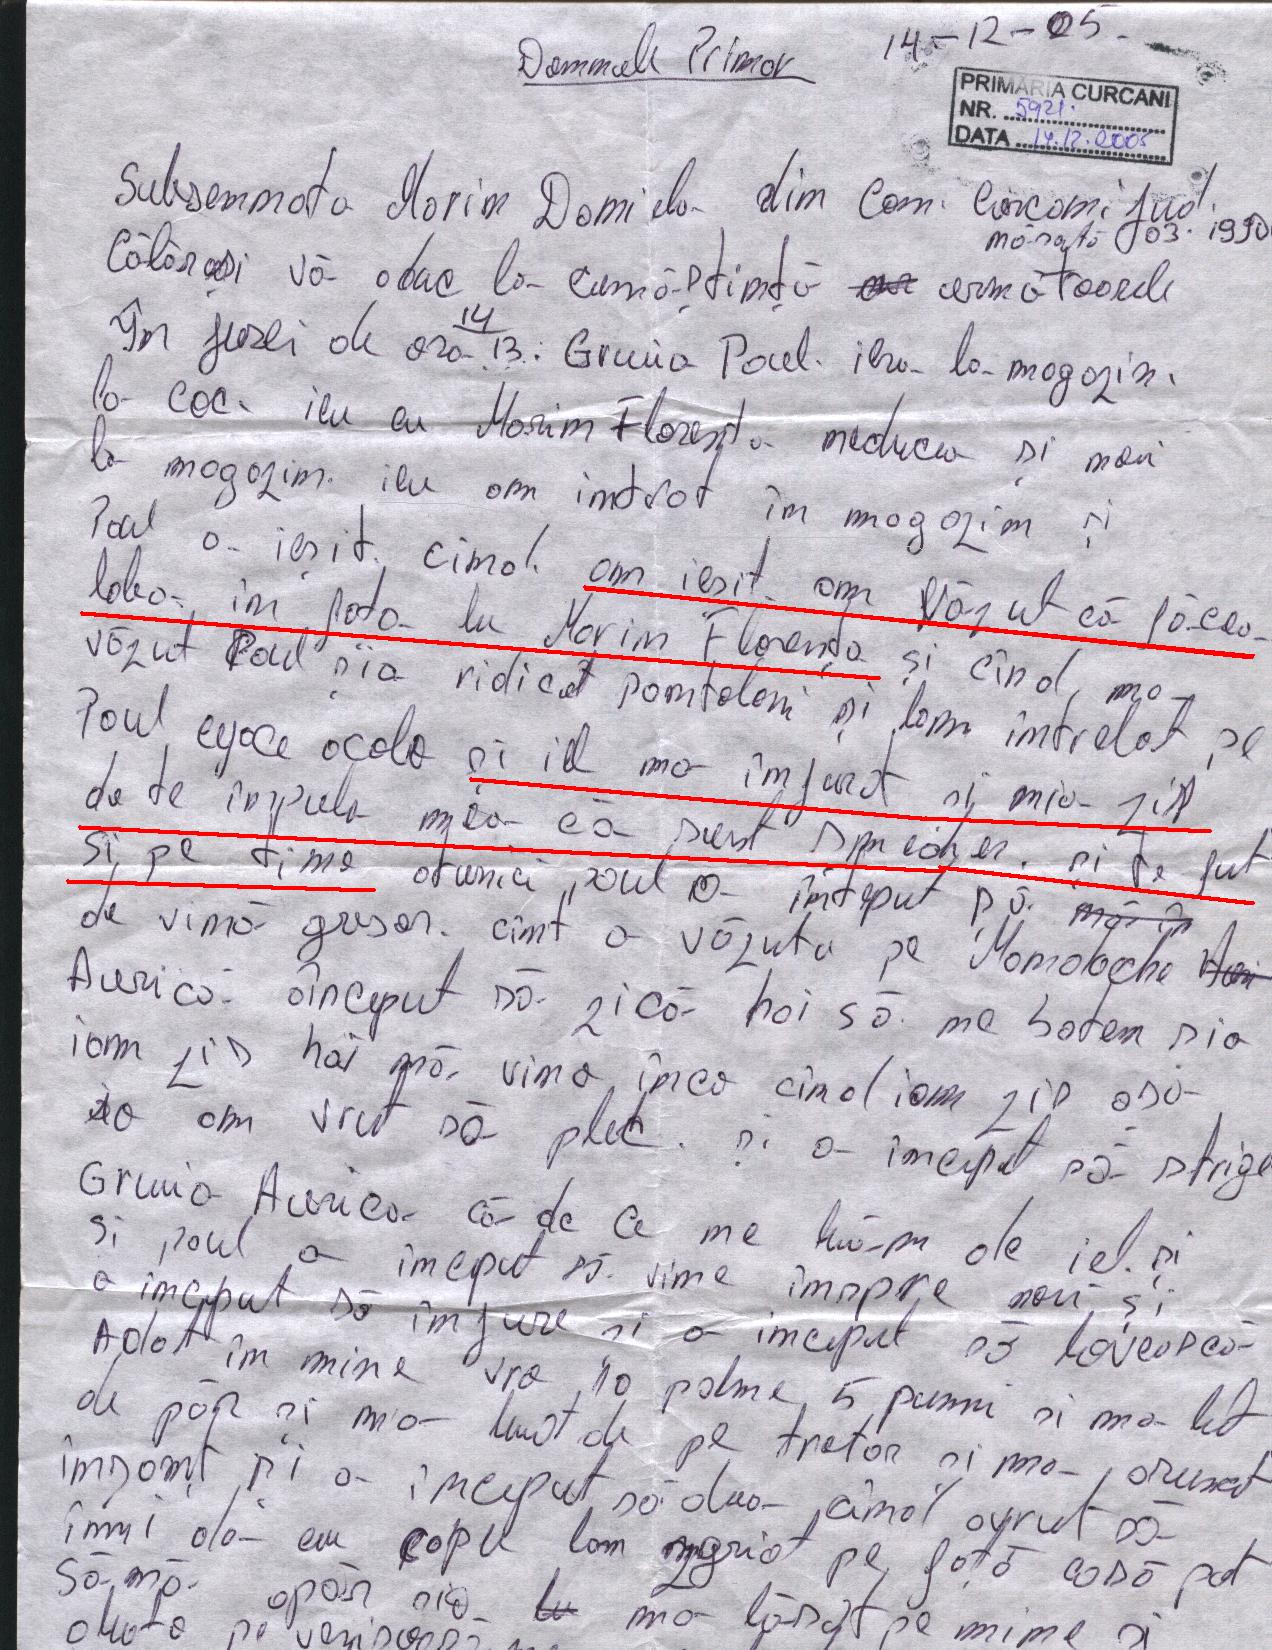 14-12-05.
Domnule Primar
PRIMĂRIA CURCANI
NR. 5921.
DATA 14.12.2005
Subsemnata Marin Daniela din Com. Curcani jud.
născută 03. 1990
Călărași vă aduc la cunoștință urmatoarele
În jurul de ora 13: Gruia Paul. iera la magazin.
14
la coc. ieu cu Marin Florența neducea și noi
la magazin. ieu am intrat în magazin și
Paul a ieșit. cînd. am ieșit am văzut că făcea
laba în fata lu Marin Florența și cînd, ma
văzut Paul șia ridicat pantaloni și lam întrebat pe
Paul ce face acolo și iel ma înjurat și mia zis
da te în pula mea că sunt smecher. și te fut
și pe tine atunci paul a început să
de vină gresar. cînt a văzutu pe Manolache
Aurică aînceput să zică hai să ne batem sia
iam zis hai mă. vina inca cînd iam zis asa
ia am vrut să plec. și a inceput să strige
Gruia Aurica că de ce ne luăm de iel. și
și paul a inceput să vine inspre noi și
a inceput să injure și a inceput să lovească
Adat în mine vro 10 palme, 5 pumni și ma luat
de păr și mia luat de pe trator și ma aruncat
însant și a inceput să dua cînd avrut să
înmi da cu capu lam zgriat pe față casă pot
să mă apăr sia ma lăsat pe mine și